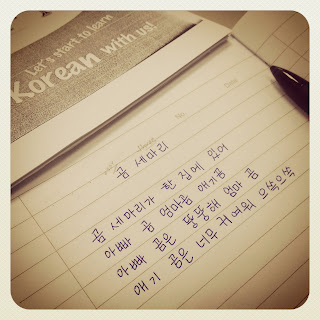 Let's start to learn
Korean with us!
No
Date
곰 세마리
곰 세마리가 한 집에 있어
아빠 곰 엄마곰 애기곰
아빠 곰은 뚱뚱해 엄마 곰
애기 곰은 너무 귀여워 으쓱으쓱